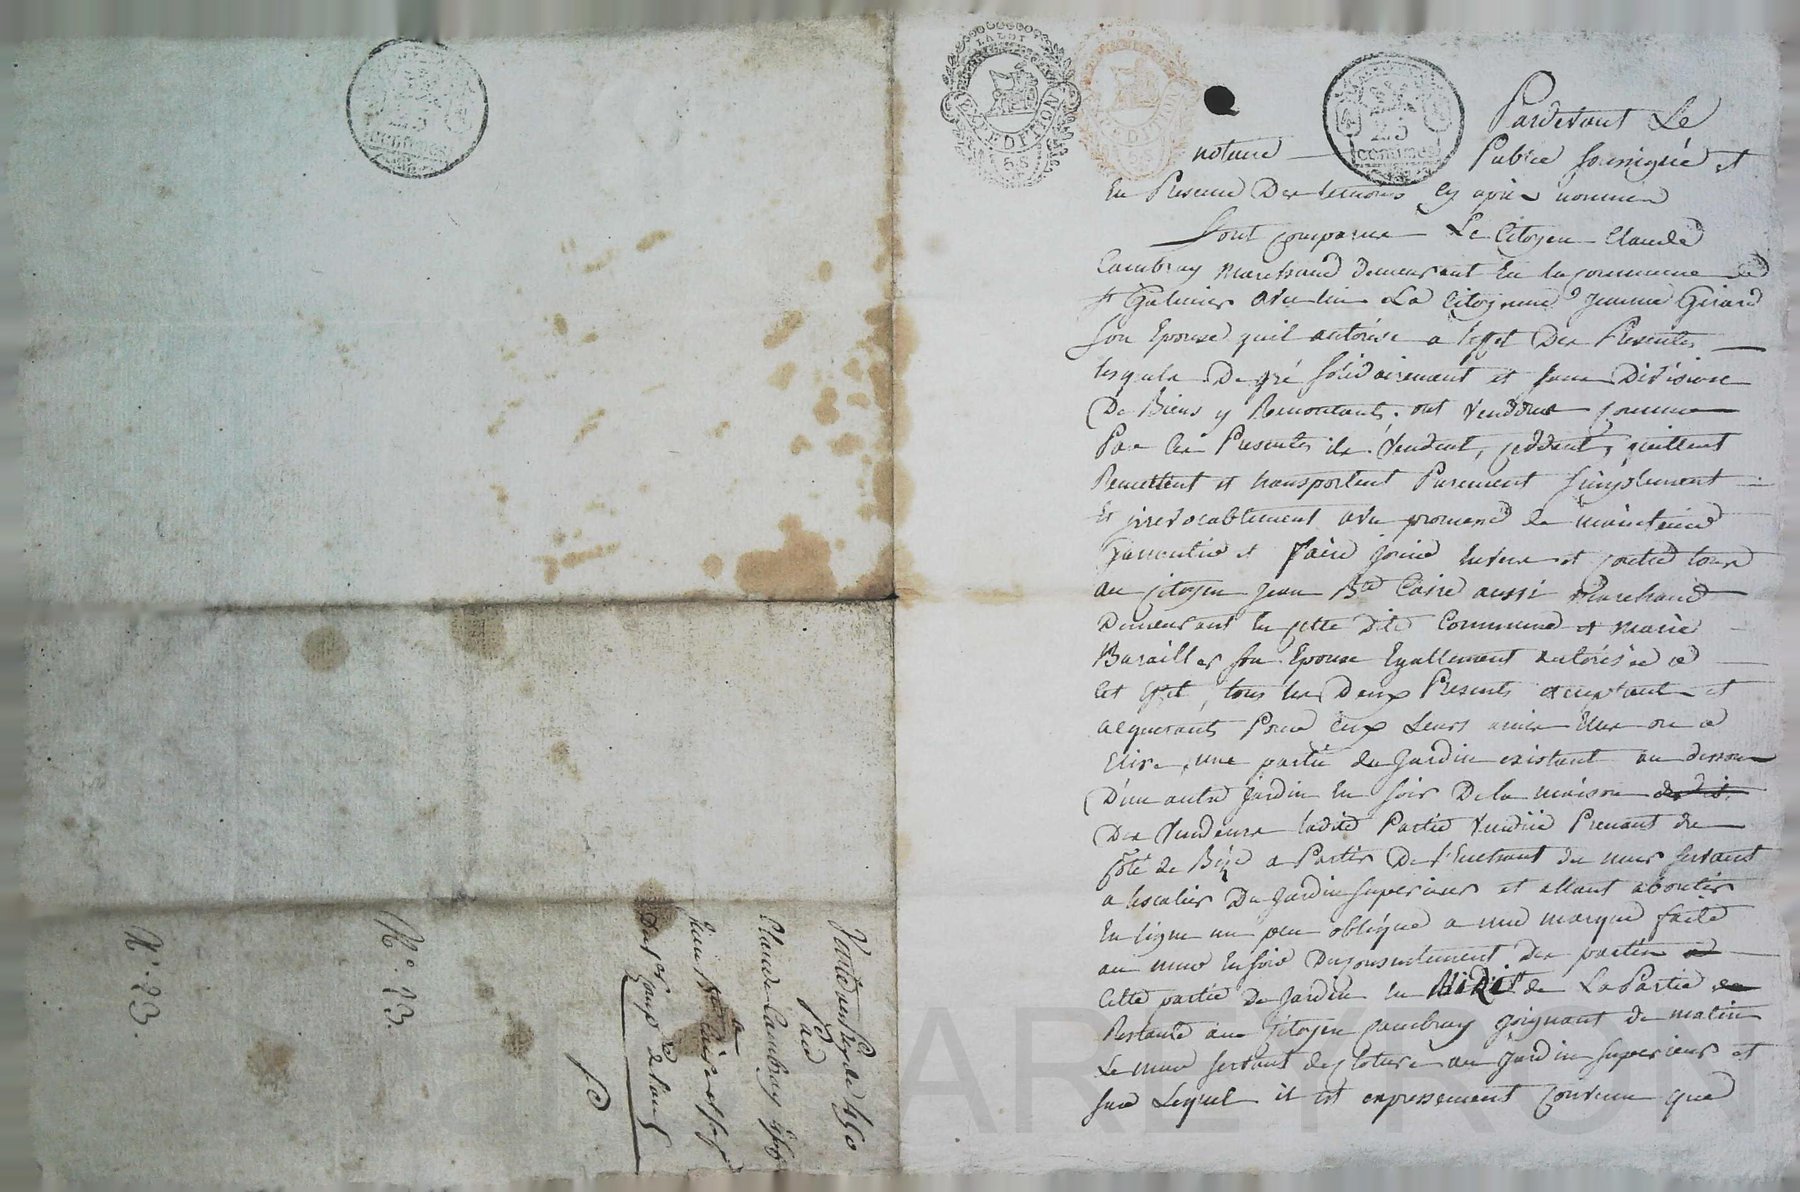 25
centimes
EXPEDITION
25
centimes
Pardevant Le
notaire Public soussigné et
En Presence Des temoins cy après nommes
Sont comparus Le Citoyen Claude
Cambray Marchand demeurant En la commune de
St Galmier avec lui La Citoyenne Jeanne Girard
son Epouse quil autorise a leffet Des Presentes
lesquels De gré solidairement et sans Division
De Biens y Renonceants, ont Vendus comme
Par les Presentes ils Vendent, ceddent, quittent
Remettent et transportent Purement simplement
Et irrevocablement avec promesse de maintenir
Garrentir et faire jouir Envers et contre tous
au citoyen Jean Bte Caire aussi Marchand
Demeurant En cette Dite Commune et Marie
Barailler son Epouse Egallement autorisée a
Cet effet, tous les Deux Presents acceptants et
acquerants Pour Eux Leurs amis Elus ou a
Elire, une partie de Jardin existant au dessous
D'un autre jardin En soir De la maison
Des Vendeurs ladite Partie Vendue Prenant du
Coté de Bize a Partir De l'Encoignure du mur servant
a lescalier Du Jardin superieur et allant aboutir
En ligne un peu oblique a une marque faite
au mur En soir Du consentement des parties
Cette partie de Jardin En Midi de La Partie
Restante au Citoyen Cambray joignant de matin
Le mur servant de cloture au Jardin superieur et
sur Lequel il est expressement convenu que
Vente au prix de 450
Par
Claude Cambray
Jean Bte Caire
N°. 13.
N°. 13.
AREYRON